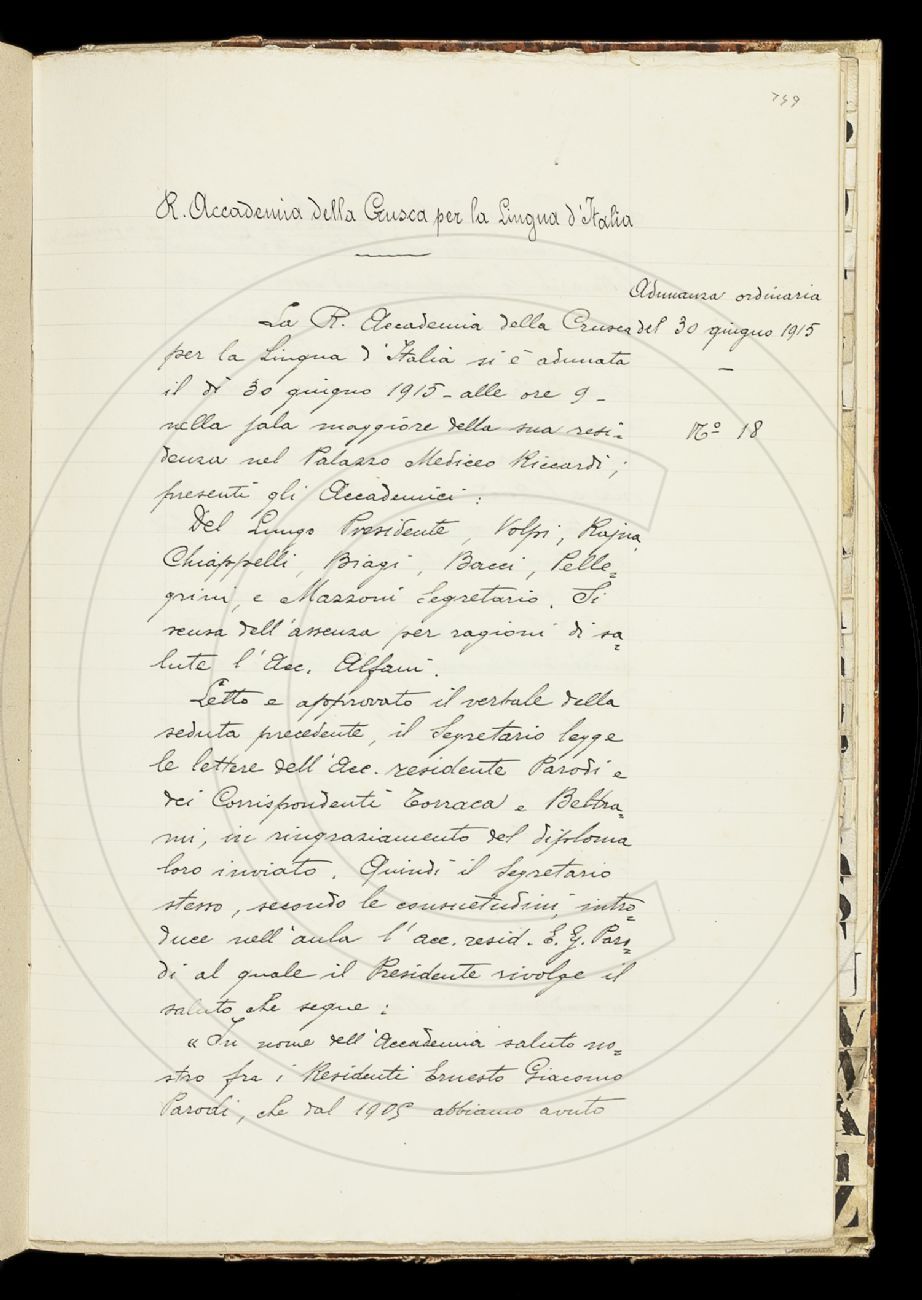 749
R. Accademia della Crusca per la Lingua d'Italia
Adunanza ordinaria
del 30 giugno 1915
Nº 18
La R. Accademia della Crusca
per la Lingua d'Italia si è adunata
il dì 30 giugno 1915 - alle ore 9 -
nella sala maggiore della sua resi=
denza nel Palazzo Mediceo Riccardi;
presenti gli Accademici:
Del Lungo Presidente, Volpi, Rajna,
Chiappelli, Biagi, Bacci, Pelle=
grini, e Mazzoni Segretario. Si
scusa dell'assenza per ragioni di sa=
lute l'Acc. Alfani.
Letto e approvato il verbale della
seduta precedente, il Segretario legge
le lettere dell'Acc. residente Parodi e
dei Corrispondenti Torraca e Beltra=
mi, in ringraziamento del diploma
loro inviato. Quindi il Segretario
stesso, secondo le consuetudini, intro=
duce nell'aula l'acc. resid. E. G. Paro=
di al quale il Presidente rivolge il
saluto che segue:
« In nome dell'Accademia saluto no=
stro fra i Residenti Ernesto Giacomo
Parodi, che dal 1905 abbiamo avuto